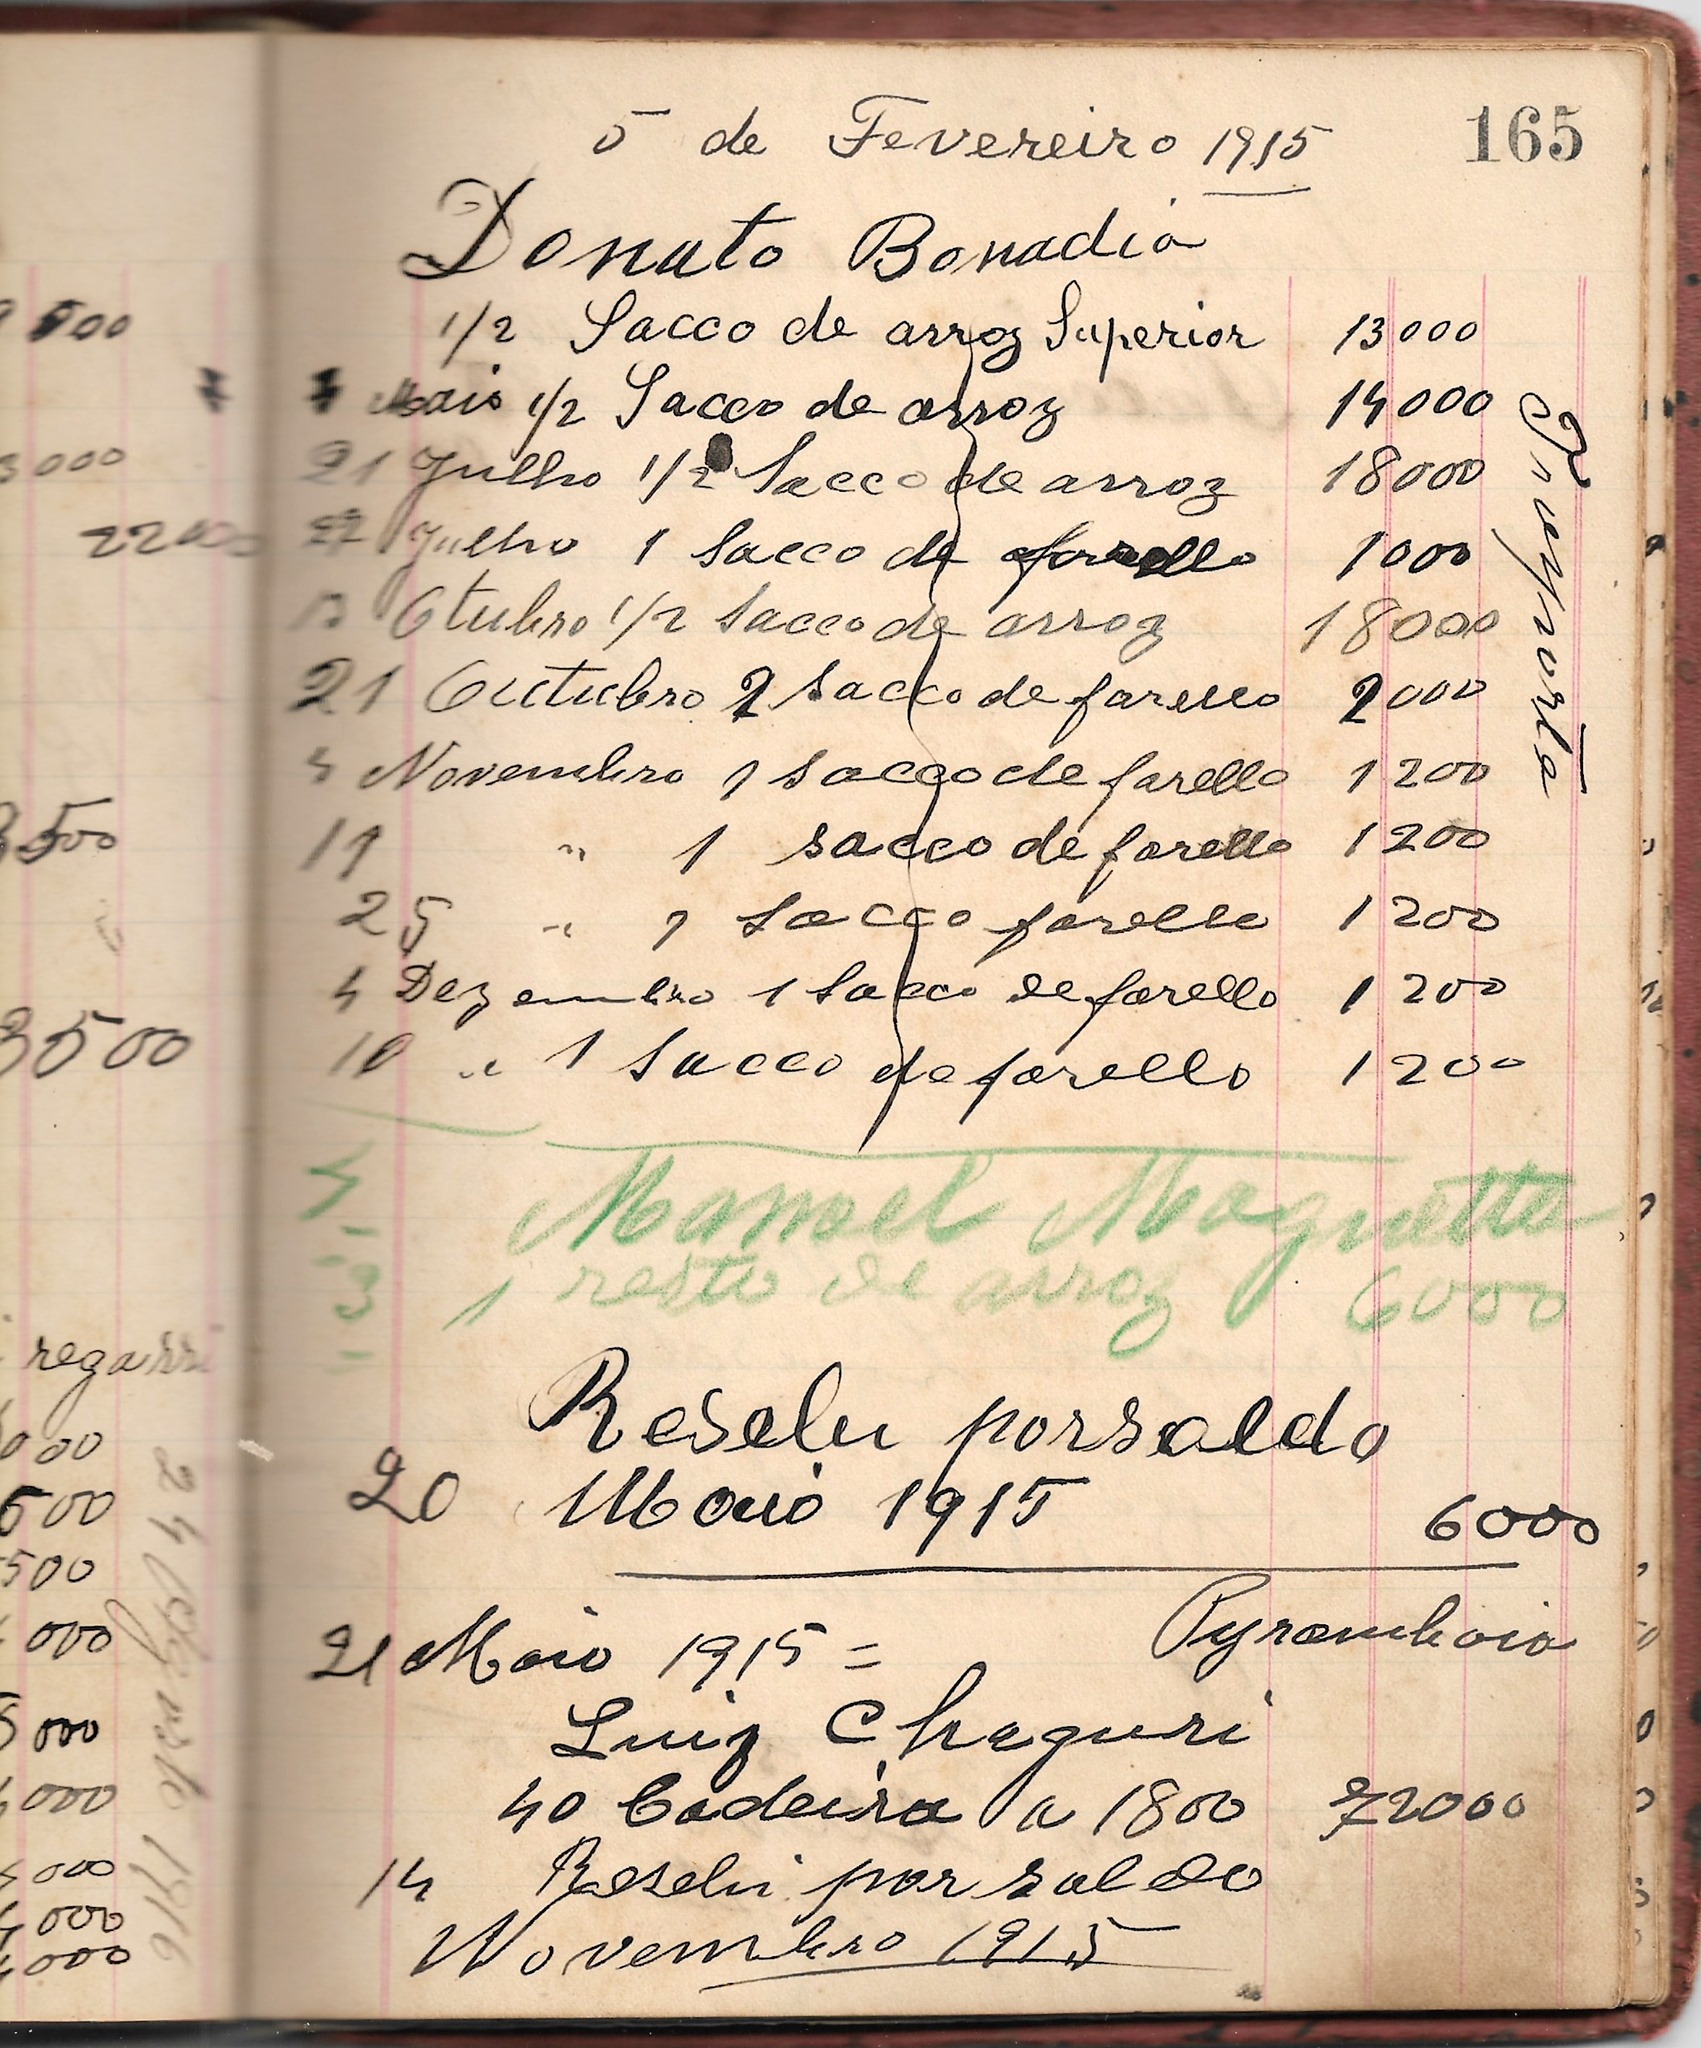 165
5 de Fevereiro 1915
Donato Bonadia
1/2 Sacco de arroz Superior 13000
Maio 1/2 Sacco de arroz 14000
21 Julho 1/2 Sacco de arroz 18000
27 Julho 1 Sacco de farello 1000
13 Otubro 1/2 Sacco de arroz 18000
21 Outubro 2 Sacco de farello 2000
4 Novembro 1 Sacco de farello 1200
11 " 1 Sacco de farello 1200
25 " 1 Sacco farello 1200
4 Dezembro 1 Sacco de farello 1200
10 " 1 Sacco de farello 1200
Manoel Magnetta
1 resto de arroz 6000
Reselu por saldo
20 Maio 1915 6000
21 Maio 1915 = Pyramboia
Luiz Chaguri
40 Cadeira a 1800 72000
14 Reselu por saldo
Novembro 1915
500
000
22000
3500
3500
regarri
000
500
500
000
5000
000
000
000
000
1916